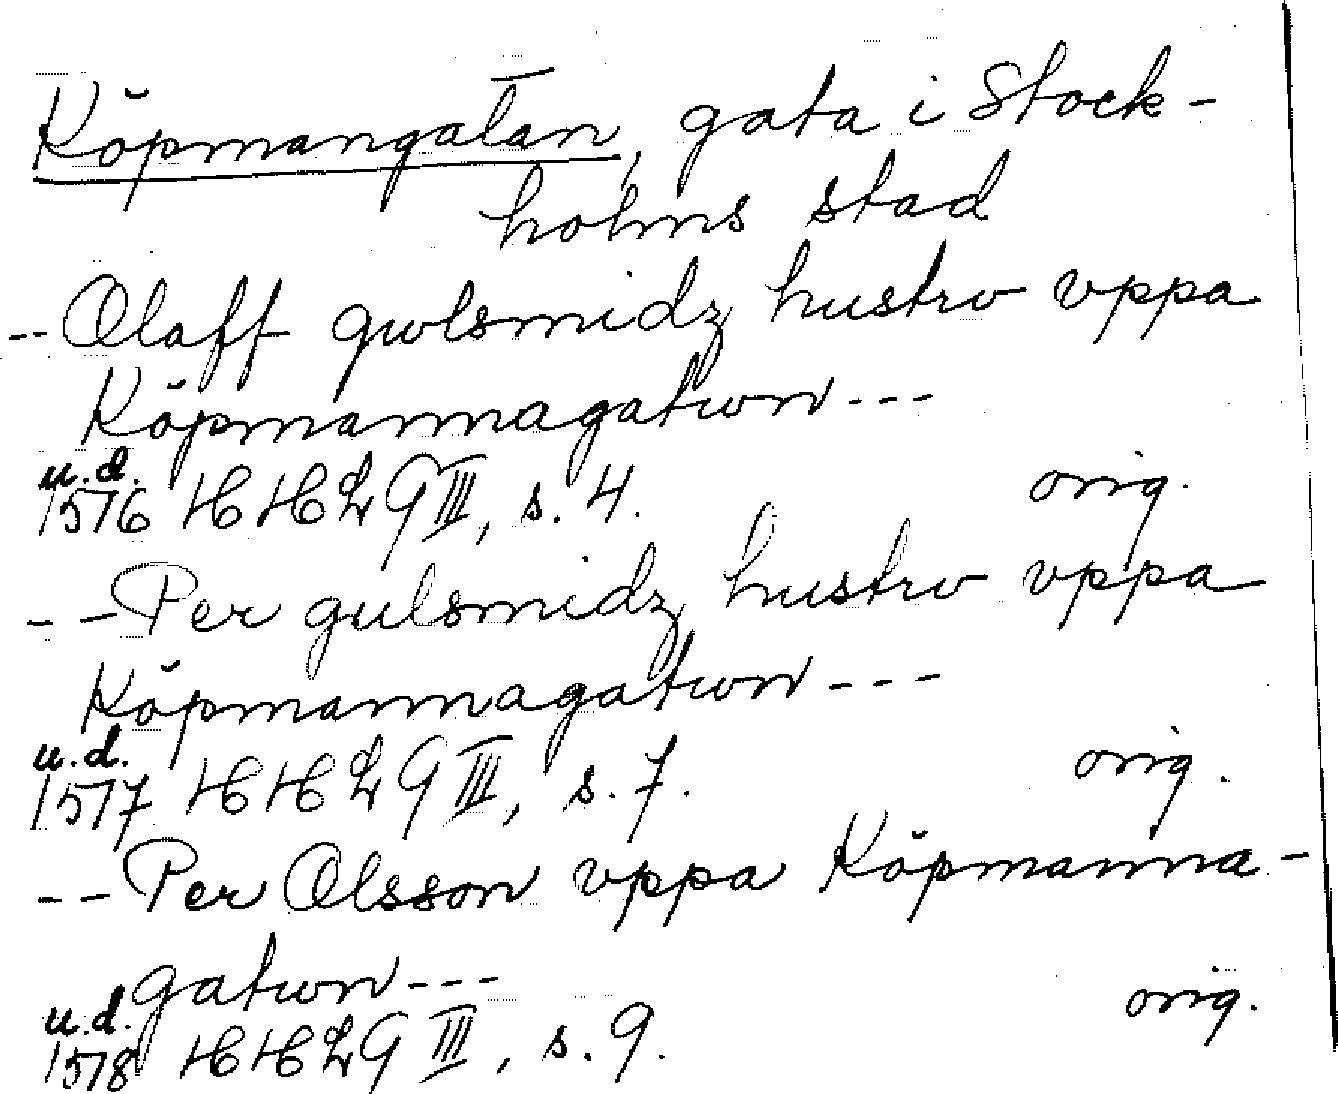 Köpmangatan, gata i Stock-
holms stad
-- Olaff gwlsmidz hustrv vppa
Köpmannagatwn ---
u.d.
1576 HHLG III, s. 4. orig.
-- Per gulsmidz hustrv vppa
Köpmannagatwn ---
u.d.
1577 HHLG III, s. 7. orig.
-- Per Olsson vppa Köpmanna-
gatwn ---
u.d.
1578 HHLG III, s. 9. orig.